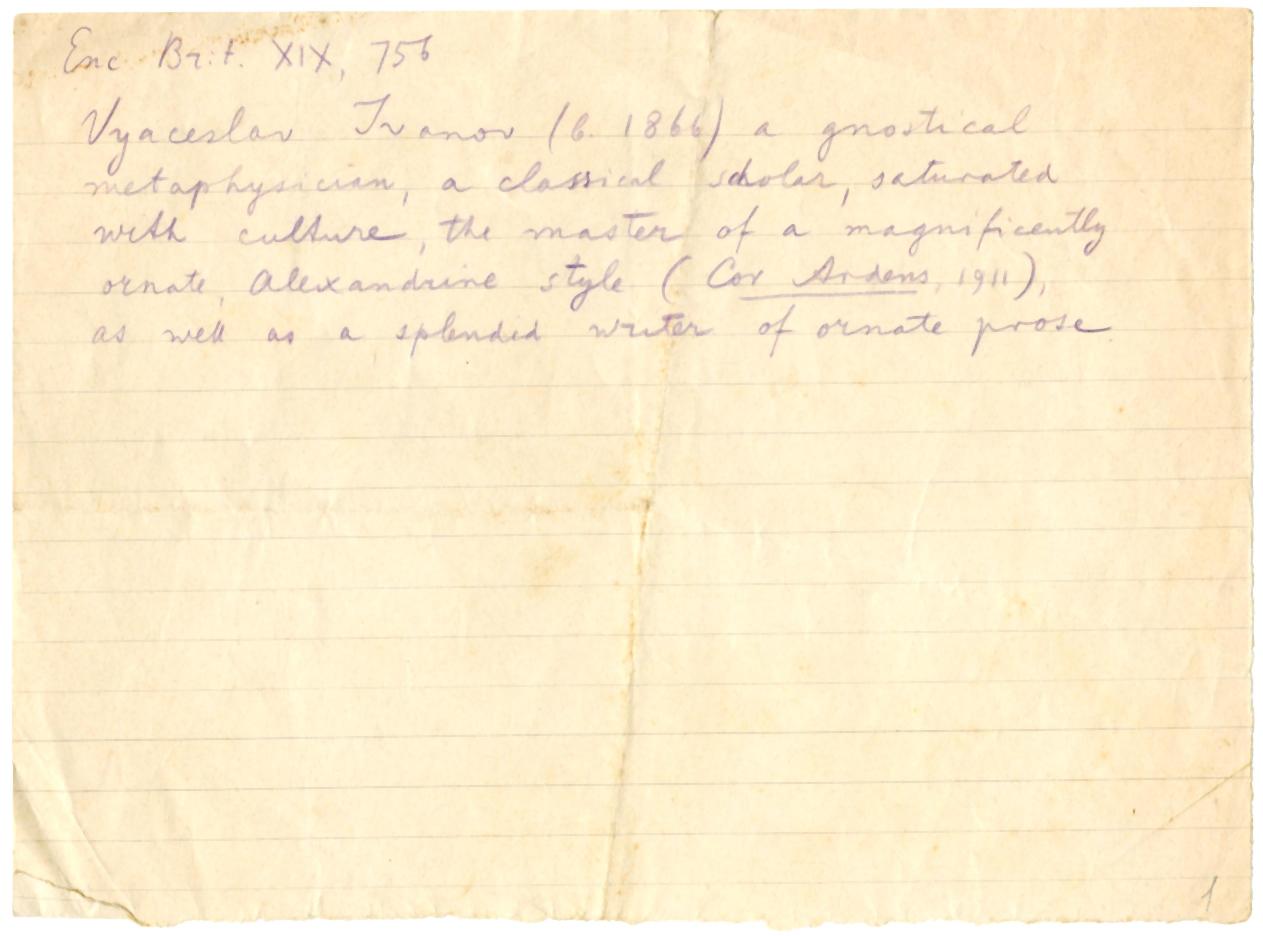 Enc Brit. XIX, 756
Vyaceslav Ivanov (b. 1866) a gnostical
metaphysician, a classical scholar, saturated
with culture, the master of a magnificently
ornate, Alexandrine style (Cor Ardens, 1911),
as well as a splendid writer of ornate prose
1